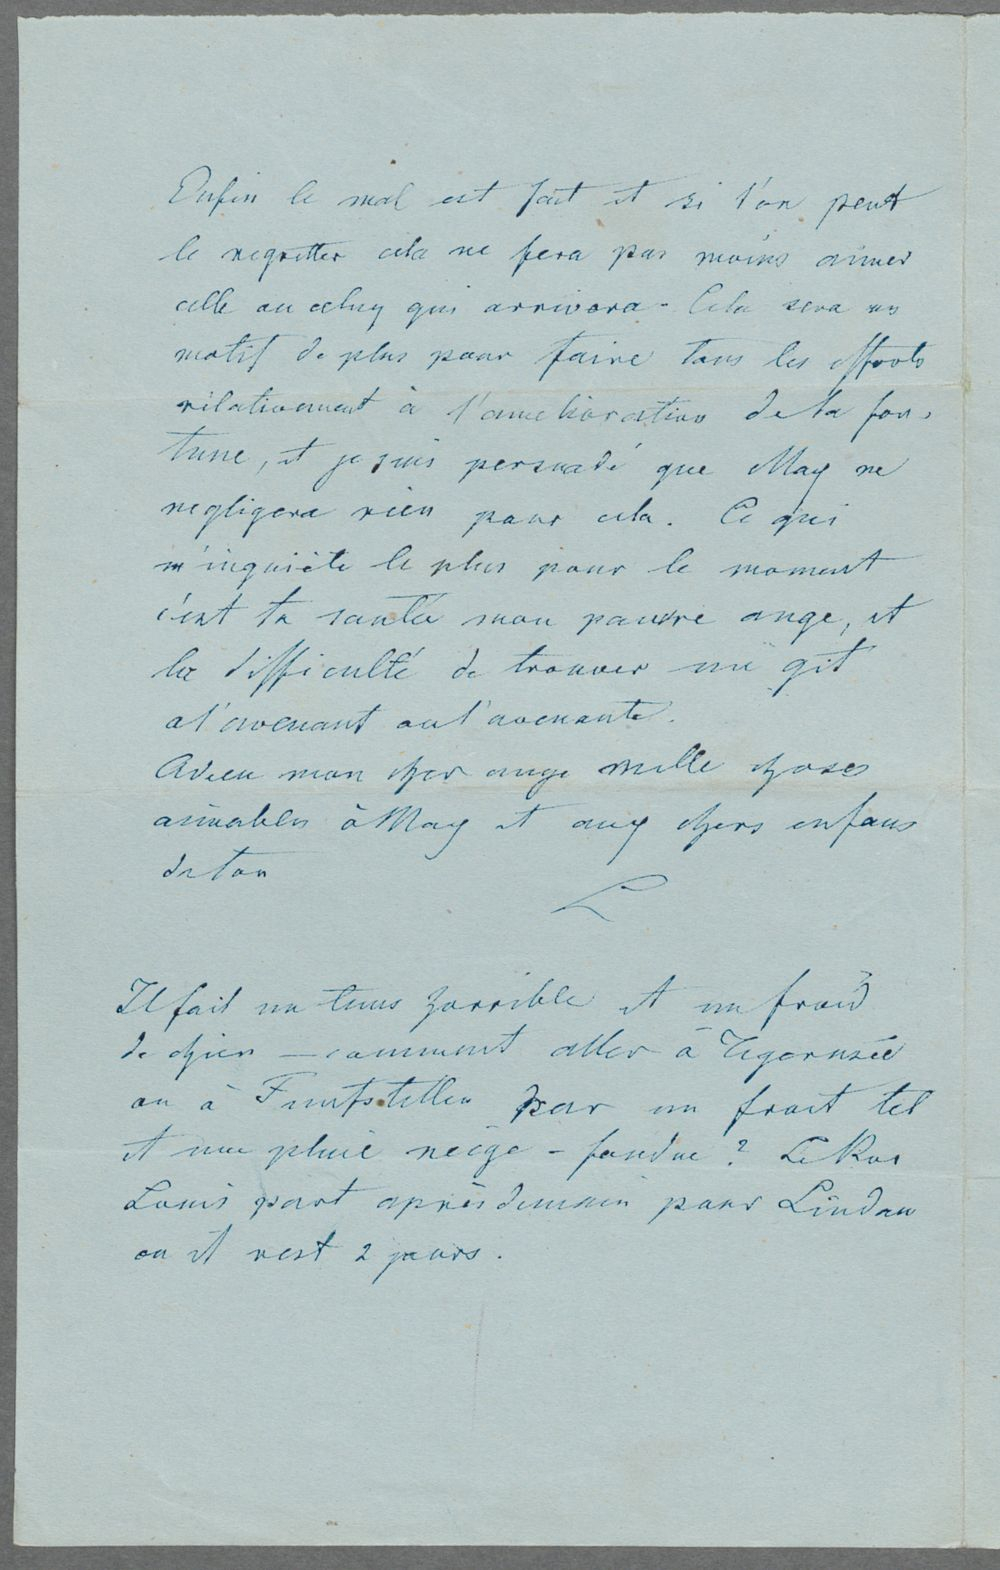 Enfin le mal est fait et si l'on peut
le regretter cela ne fera pas moins aimer
celle ou celuy qui arrivera - Cela sera un
motif de plus pour faire tous les efforts
relativement à l'amelioration de la for-
tune, et je suis persuadé que May ne
negligera rien pour cela. Ce qui
m'inquiète le plus pour le moment
c'est ta santée mon pauvre ange, et
la difficulté de trouver un gît
a l'avenant ou l'avenante.
Adieu mon cher ange mille choses
aimables à May et aux chers enfans
de ton
L
Il fait un tems horrible et un froid
de chien - comment aller à Tegernsée
ou à par un froit tel
et une pluie neige - fondue? Le Roi
Louis part après demain pour Lindau
ou il rest 2 jours.